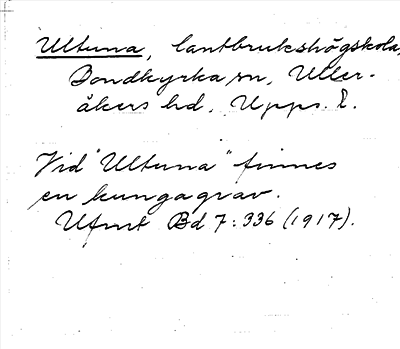 Ultuna, lantbrukshögskola,
Bondkyrka sn, Uller-
åkers hd, Upps. L.
Vid "Ultuna" finnes
en kungagrav.
Ufmt Bd 7:336 (1917).